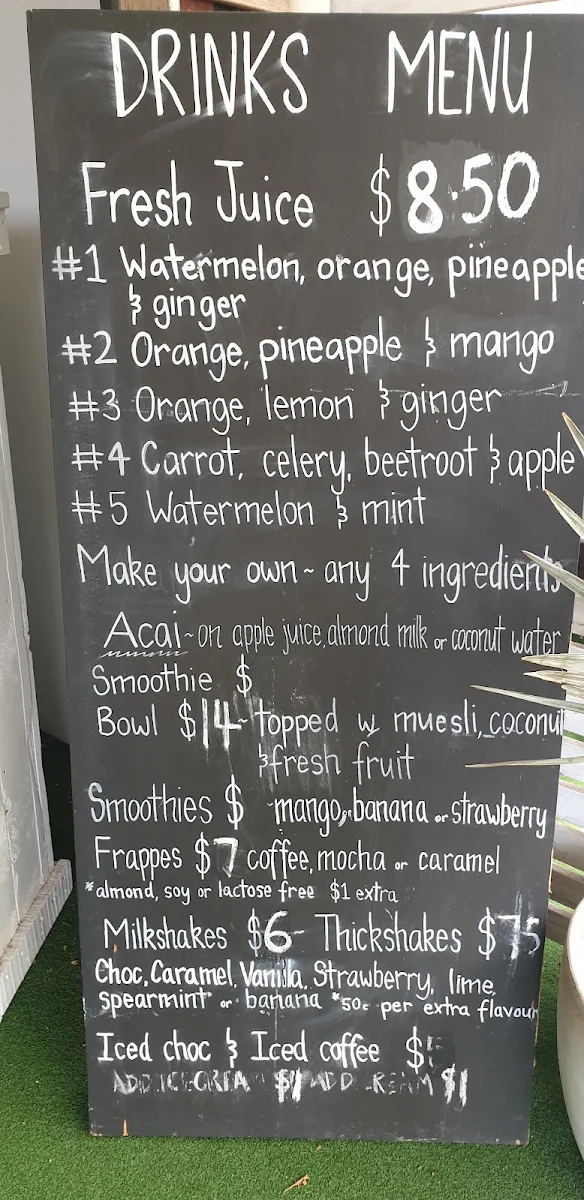 DRINKS MENU
Fresh Juice $8.50
#1 Watermelon, orange, pineapple
& ginger
#2 Orange, pineapple & mango
#3 Orange, lemon & ginger
#4 Carrot, celery, beetroot & apple
#5 Watermelon & mint
Make your own ~ any 4 ingredients
Acai ~ on apple juice, almond milk or coconut water
Smoothie $
Bowl $14 ~ topped w muesli, coconut
& fresh fruit
Smoothies $ ~ mango, banana or strawberry
Frappes $7 coffee, mocha or caramel
*almond, soy or lactose free $1 extra
Milkshakes $6 Thickshakes $
Choc, Caramel, Vanilla, Strawberry, lime,
spearmint or banana *50c per extra flavour
Iced choc & Iced coffee $
ADD $1 ADD $1